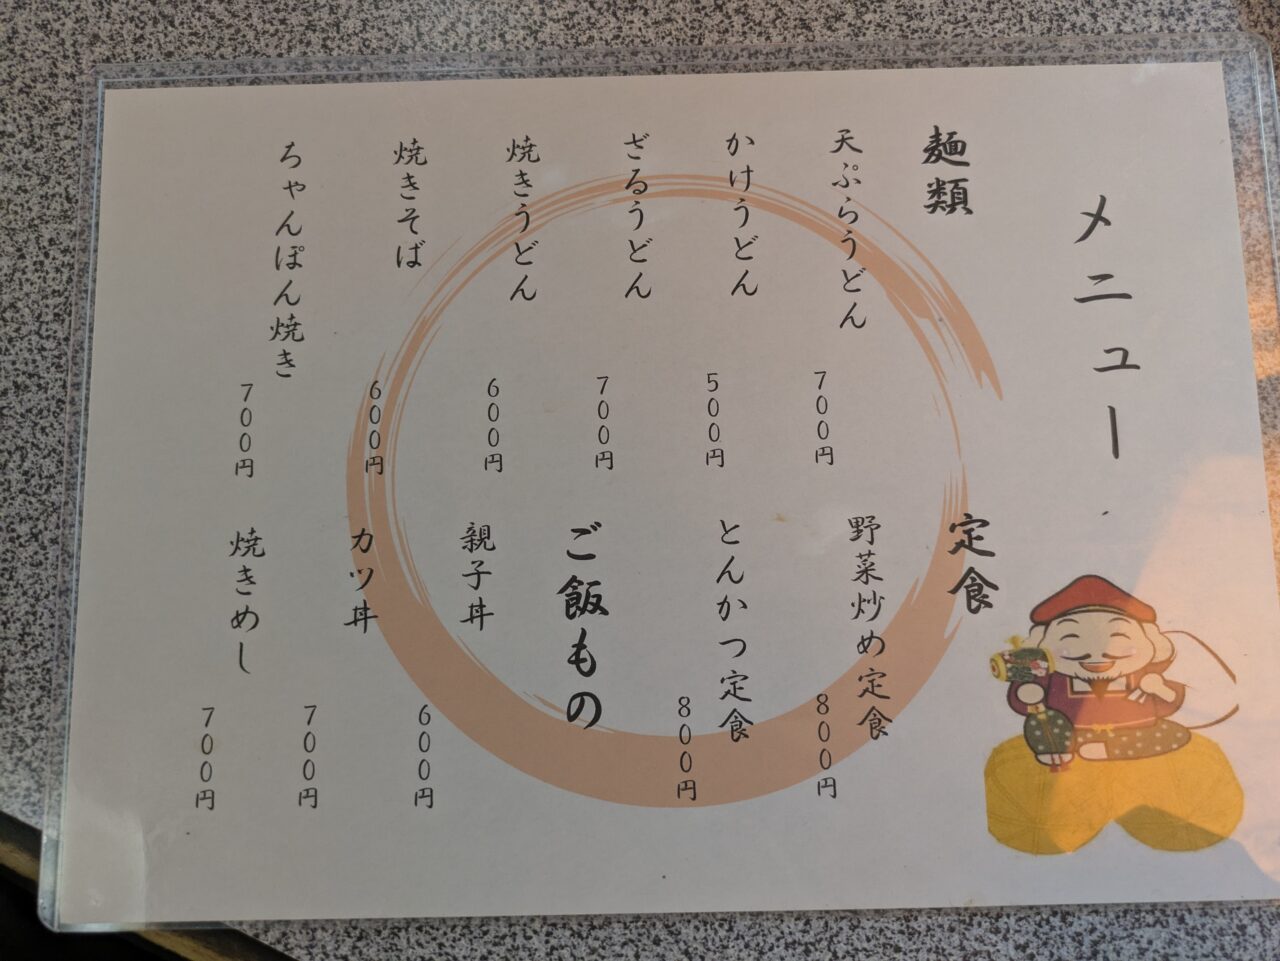 メニュー
麺類
天ぷらうどん 700円
かけうどん 500円
ざるうどん 700円
焼きうどん 600円
焼きそば 600円
ちゃんぽん焼き 700円
定食
野菜炒め定食 800円
とんかつ定食 800円
ご飯もの
親子丼 600円
カツ丼 700円
焼きめし 700円